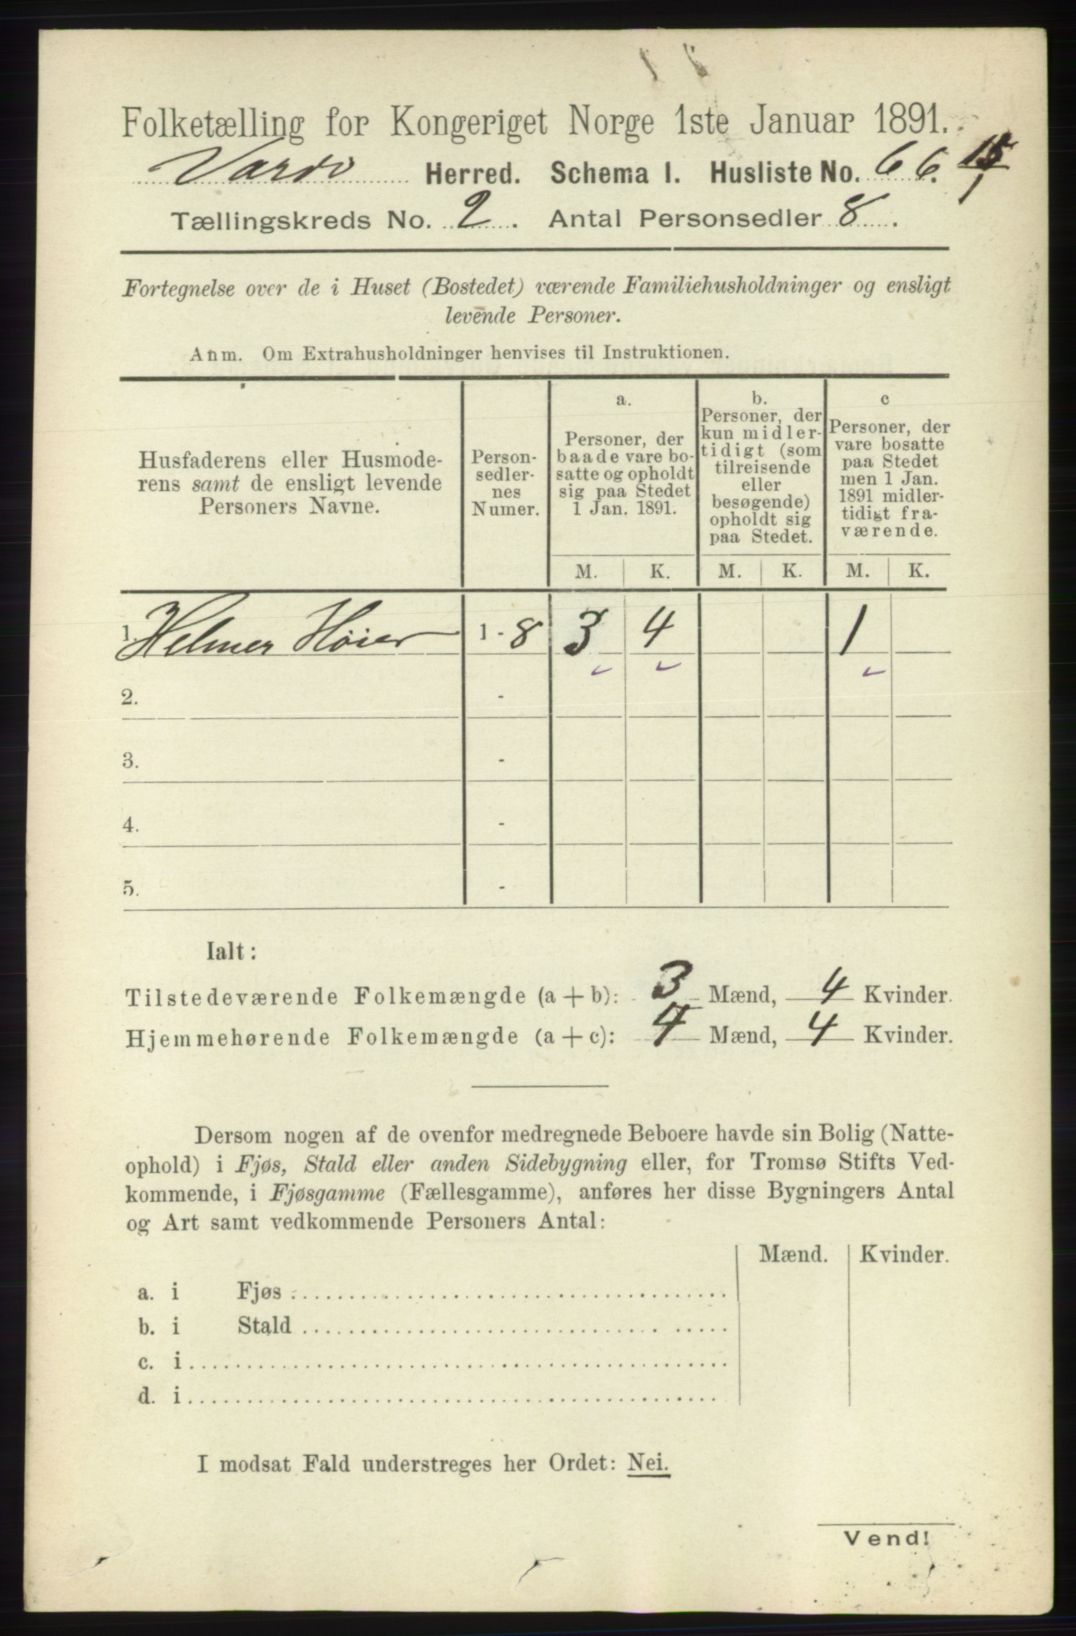 Folketælling for Kongeriget Norge 1ste Januar 1891.
Vardø Herred. Schema I. Husliste No. 66. 15/1
Tællingskreds No. 2. Antal Personsedler 8.
Fortegnelse over de i Huset (Bostedet) værende Familiehusholdninger og ensligt
levende Personer.
Anm. Om Extrahusholdninger henvises til Instruktionen.
Husfaderens eller Husmode-
rens samt de ensligt levende
Personers Navne.
Person-
sedler-
nes
Numer.
a.
Personer, der
baade vare bo-
satte og opholdt
sig paa Stedet
1 Jan. 1891.
b.
Personer, der
kun midler-
tidigt (som
tilreisende
eller
besøgende)
opholdt sig
paa Stedet.
c
Personer, der
vare bosatte
paa Stedet
men 1 Jan.
1891 midler-
tidigt fra-
værende.
M. K. M. K. M. K.
1. Helmer Höier 1 - 8 3 4 1
2. -
3. -
4. -
5. -
Ialt:
Tilstedeværende Folkemængde (a + b): 3 Mænd, 4 Kvinder.
Hjemmehørende Folkemængde (a + c): 4 Mænd, 4 Kvinder.
Dersom nogen af de ovenfor medregnede Beboere havde sin Bolig (Natte-
ophold) i Fjøs, Stald eller anden Sidebygning eller, for Tromsø Stifts Ved-
kommende, i Fjøsgamme (Fællesgamme), anføres her disse Bygningers Antal
og Art samt vedkommende Personers Antal:
Mænd. Kvinder.
a. i Fjøs
b. i Stald
c. i
d. i
I modsat Fald understreges her Ordet: Nei.
Vend!